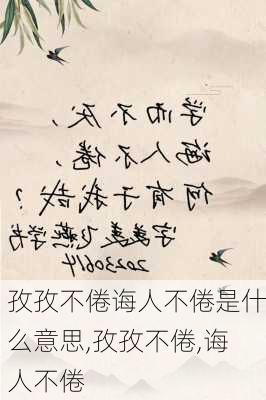 学而不厌、
诲人不倦、
何有于我哉？
字美美飞燕学书
20230614
孜孜不倦诲人不倦是什
么意思,孜孜不倦,诲
人不倦